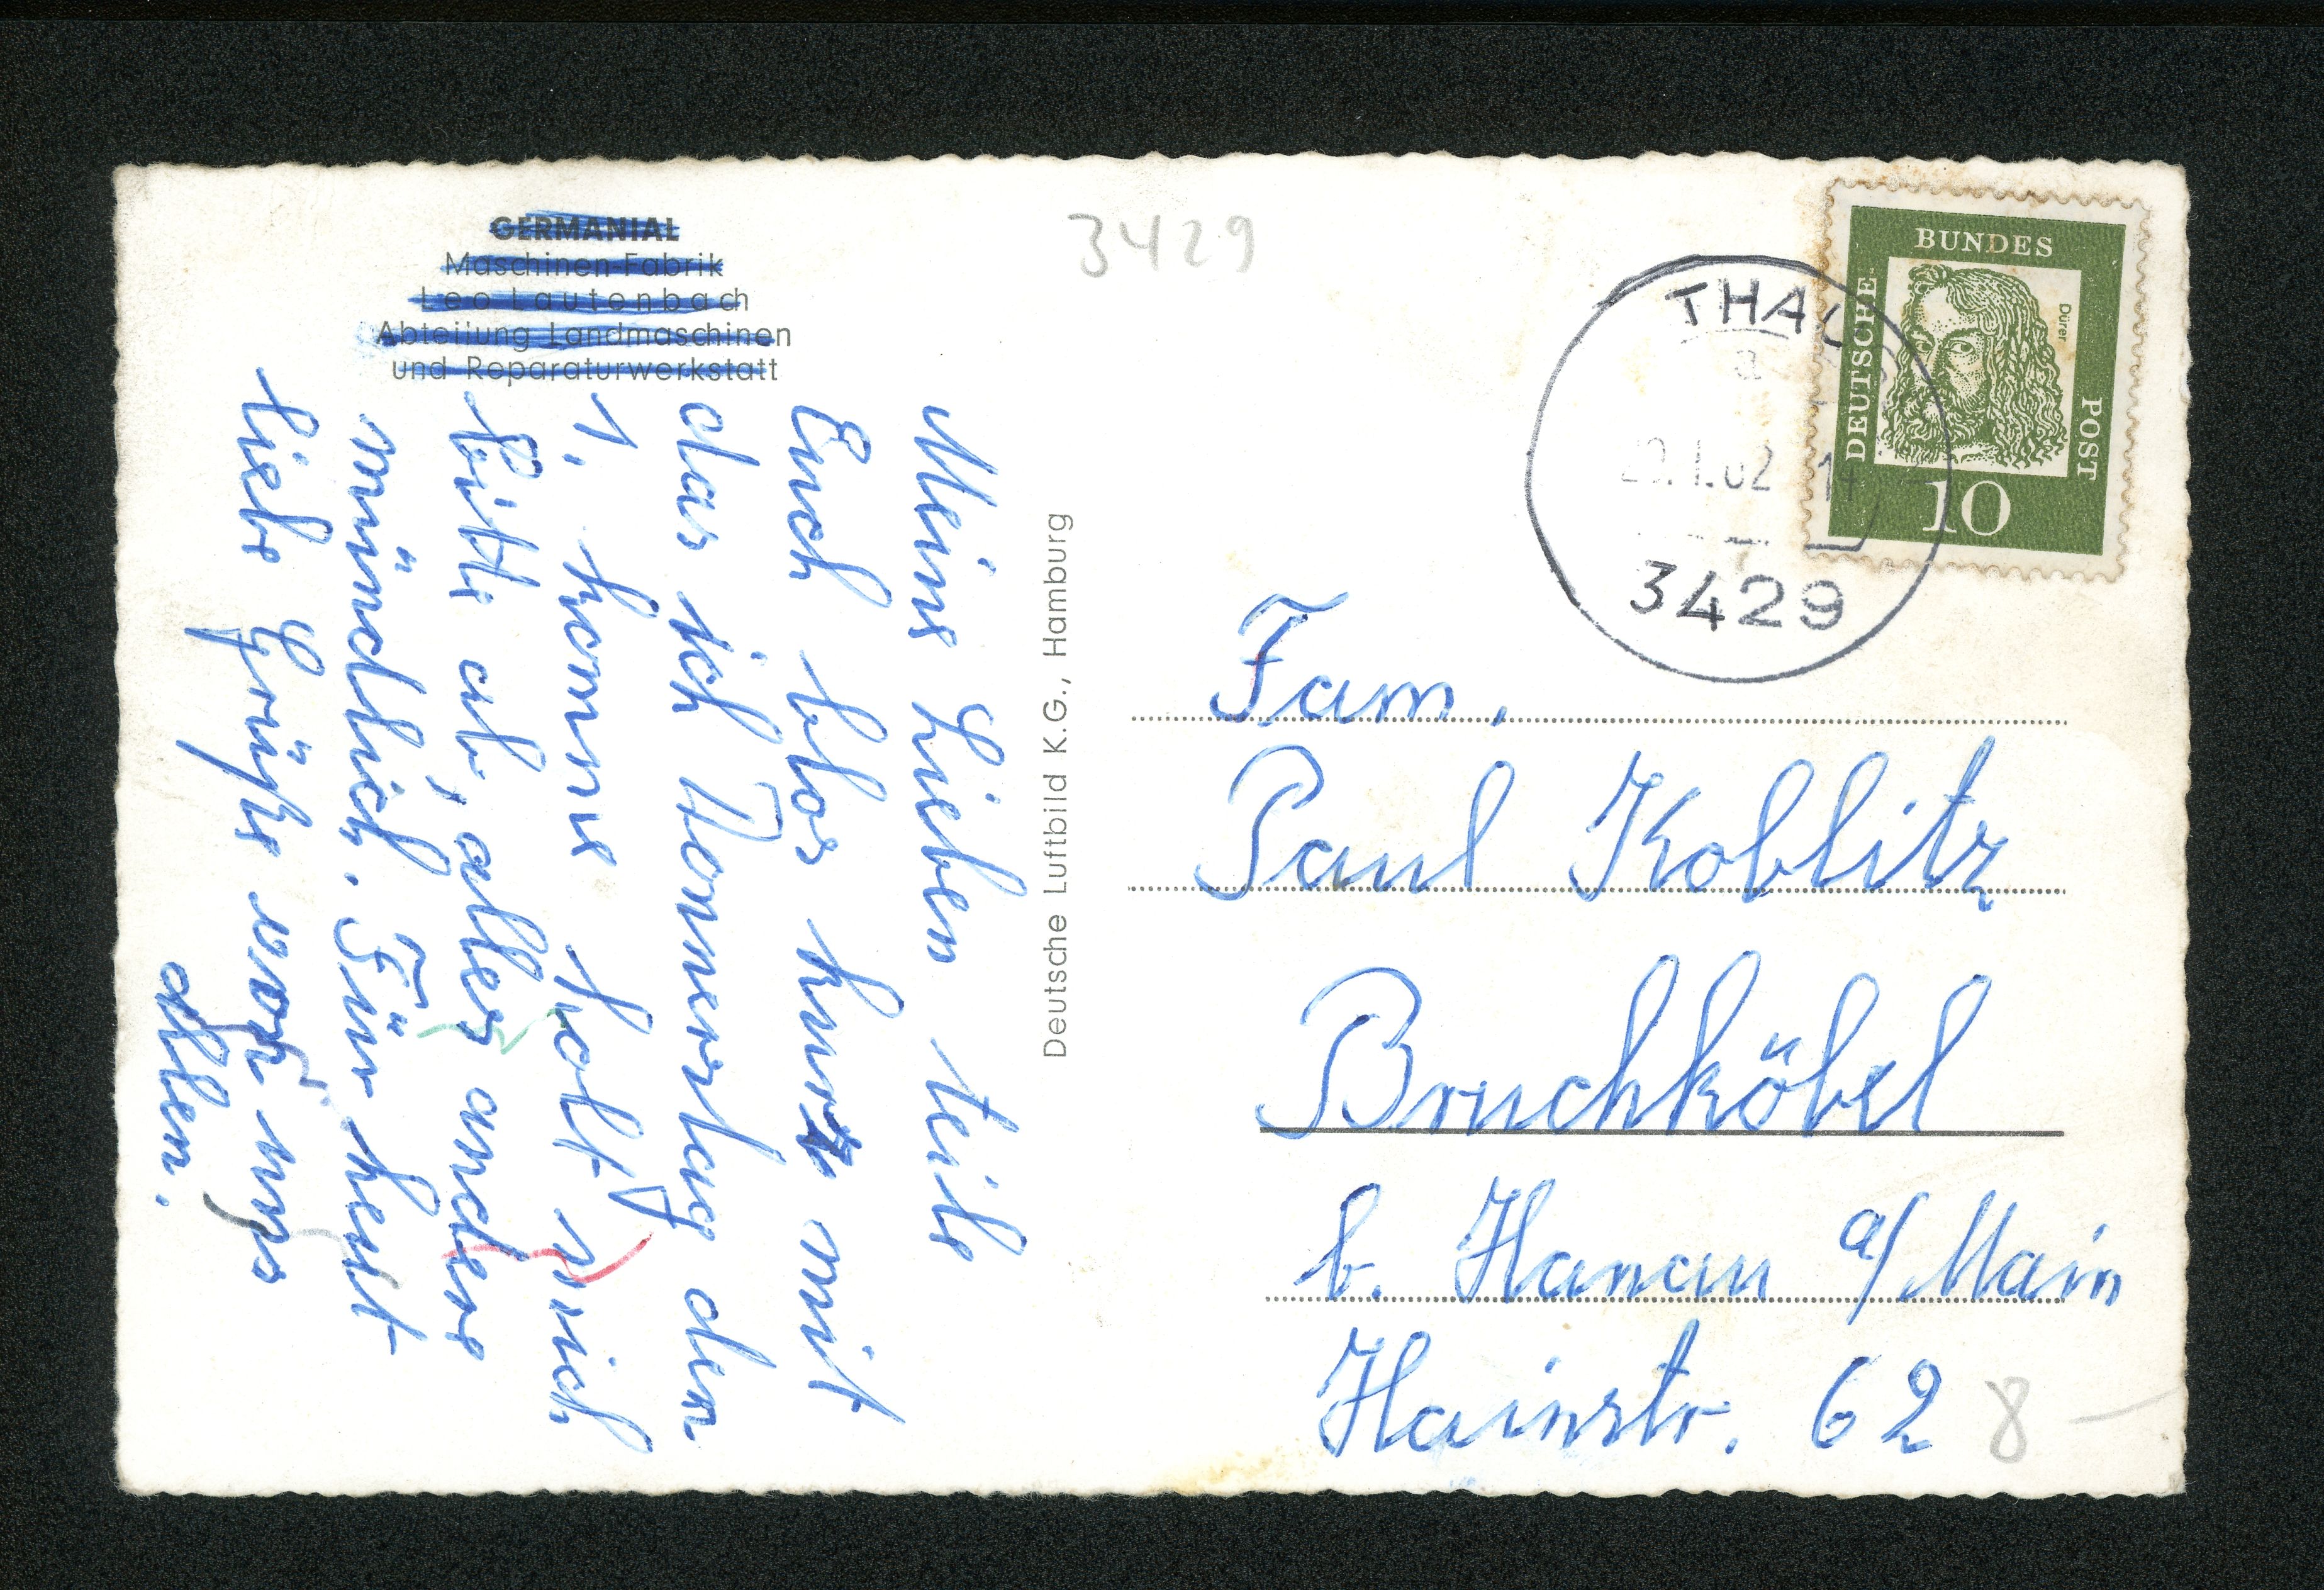 GERMANIAL
Maschinen-Fabrik
Leo Lautenbach
Abteilung Landmaschinen
und Reparaturwerkstatt
Meine Lieben teile
Euch blos kurz mit
das ich Donnerstag den
1. komme holt mich
bitte ab, alles andere
mündlich. Für heut
liebe Grüße von uns
allen.
Deutsche Luftbild K.G., Hamburg
3429
THAL
a
1.62
3429
DEUTSCHE
BUNDES
POST
Dürer
10
Fam.
Paul Koblitz
Bruchköbel
b. Hanau a/Main
Hainstr. 62
8 –